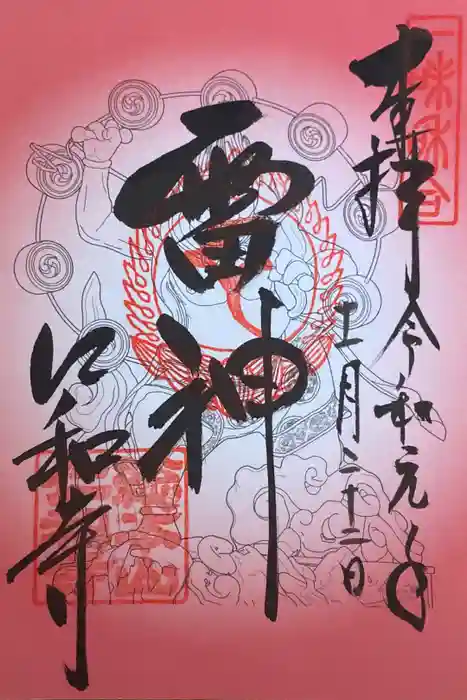 奉拝 令和元年
十一月二十二日
雷神
仁和寺